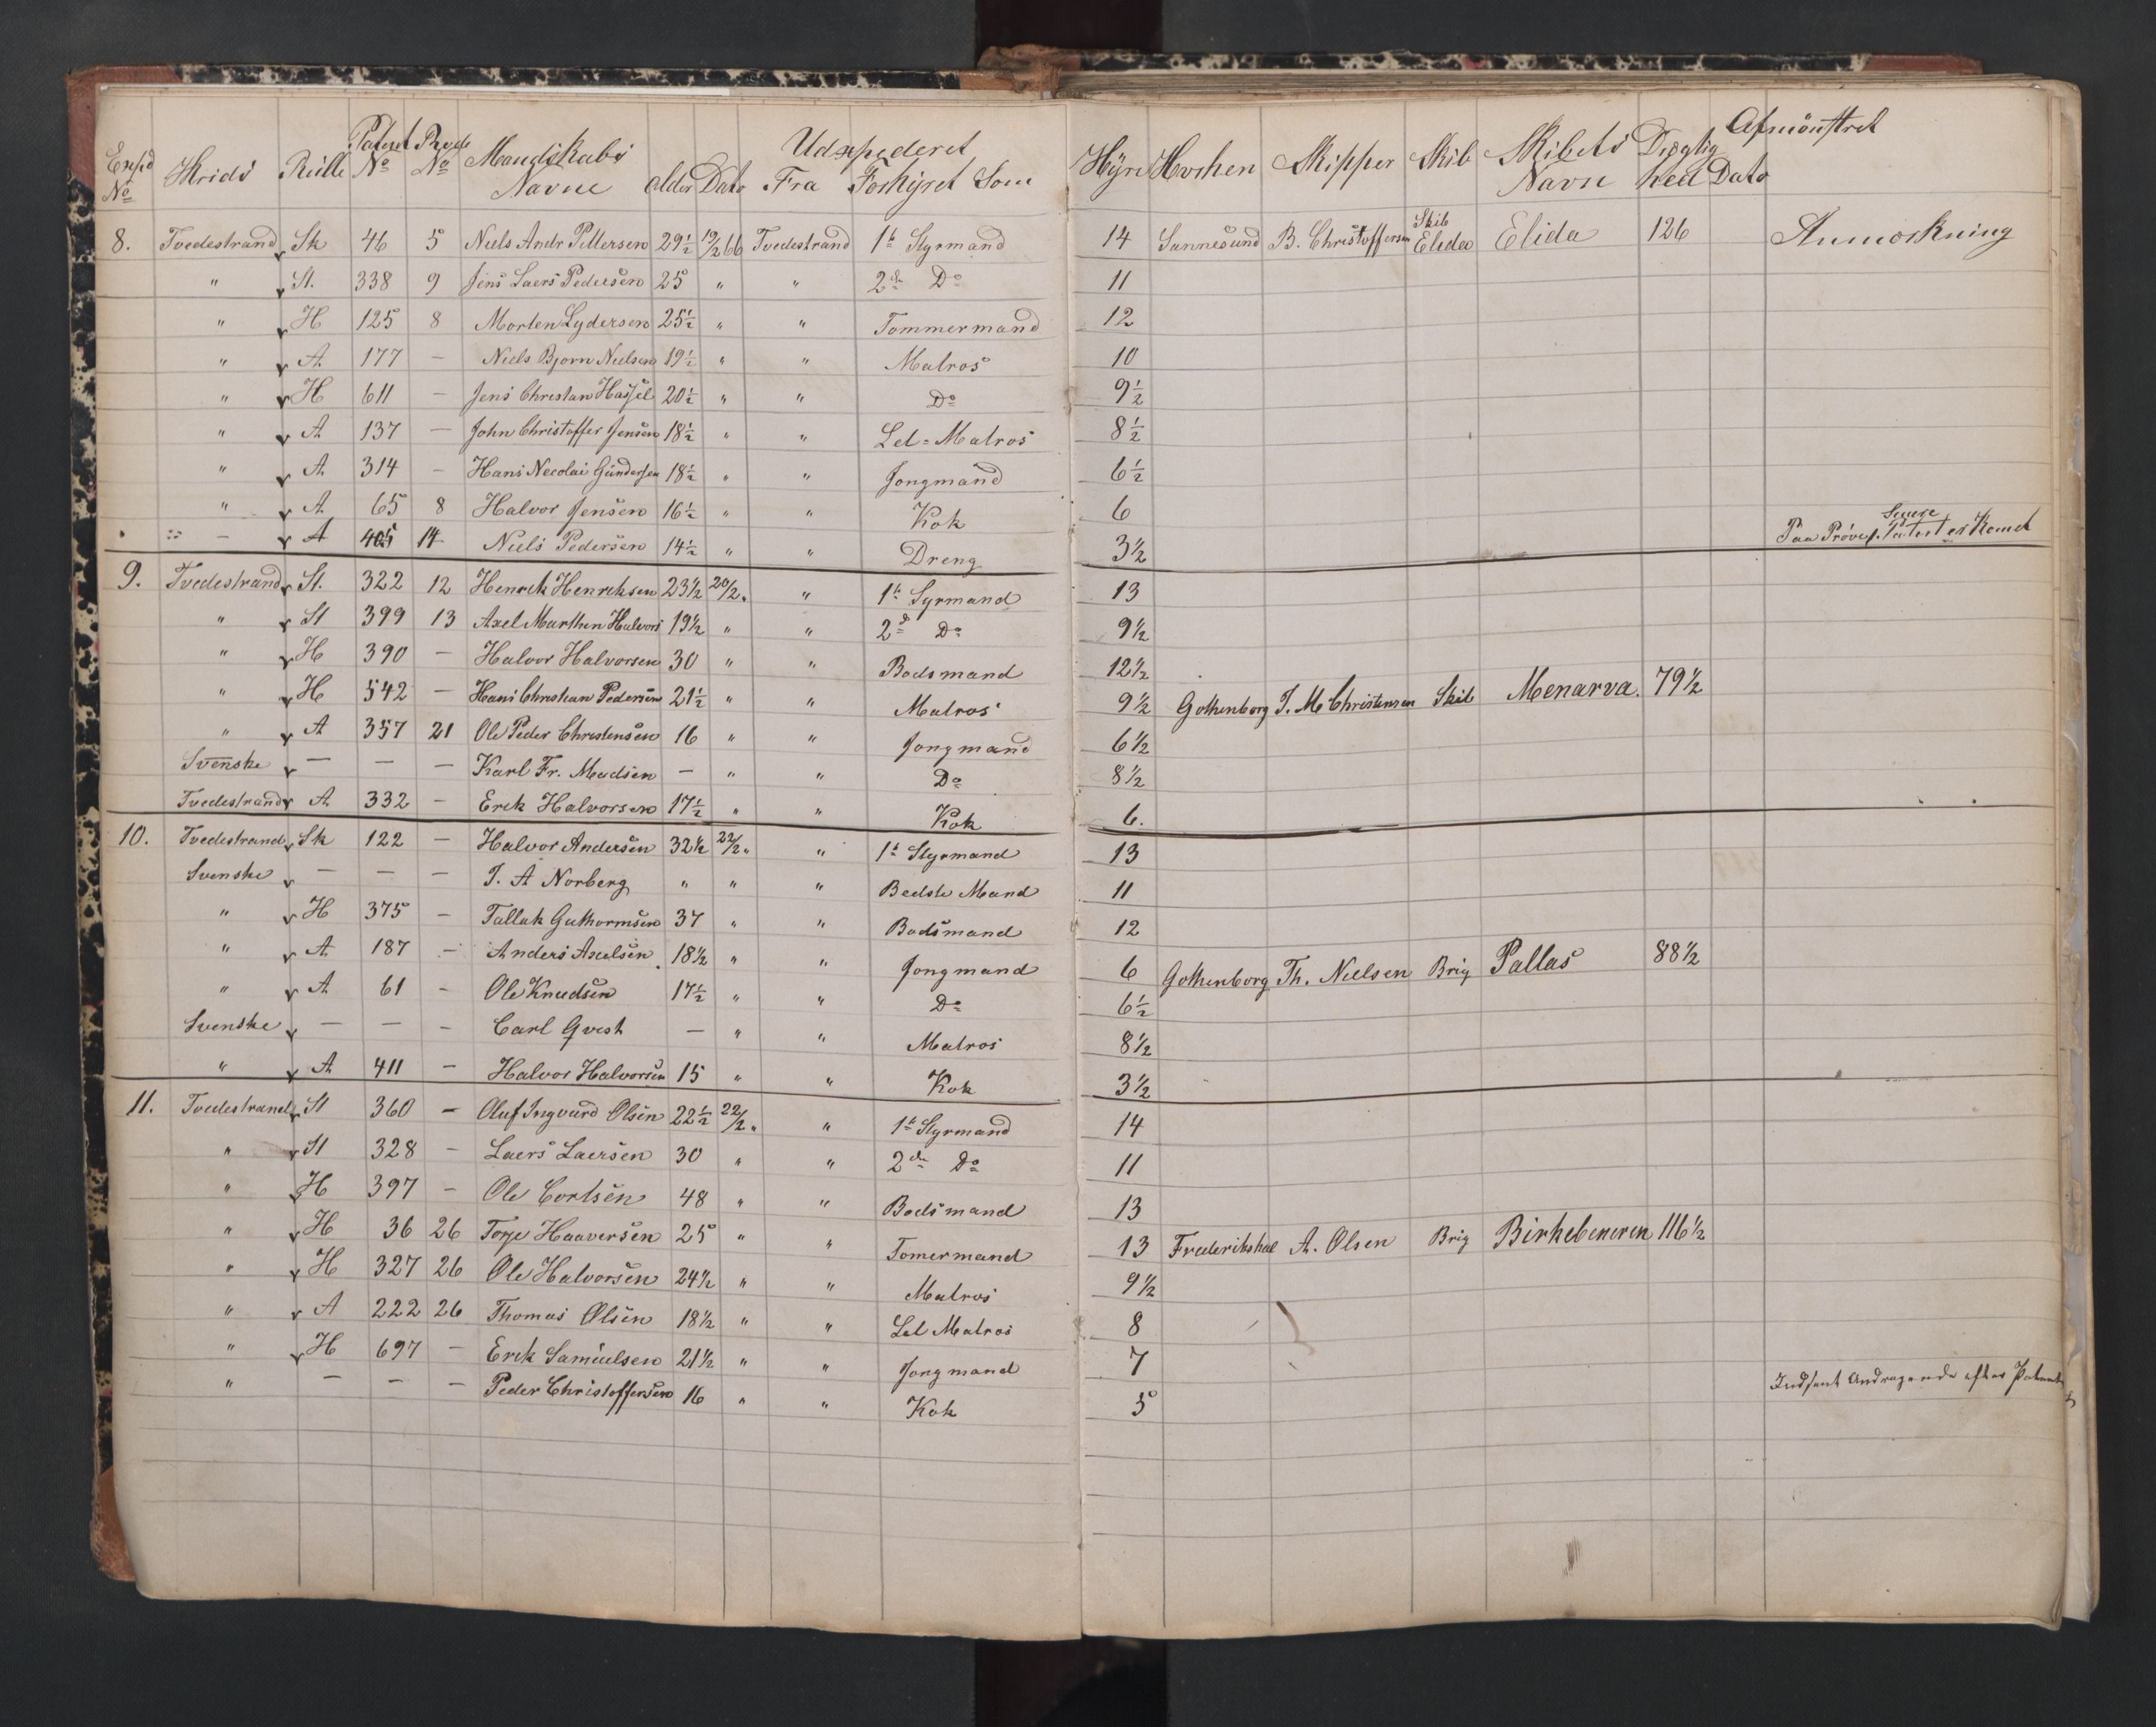 Exsp No Krids Rulle Patent No Prøve No Mandskabs Navne Alder Dato Udexpederet Fra Forhyret Som Hyre Hvorhen Skipper Skib Skibets Navn Drægtighed Afmönstret Dato
8. Tvedestrand Sk 46 5 Niels Andr Pettersen 29½ 19/2 66 Tvedestrand 1ste Styrmand 14 Sannesund B. Christoffersen Skib Elida Elida 126 Anmærkning
" St. 338 9 Jens Laers Pedersen 25 " " 2den Do 11
" H 125 8 Morten Lydersen 25½ " " Tommermand 12
" A 177 – Niels Bjorn Nielsen 19½ " " Matros 10
" H 611 – Jens Christian Hassel 20½ " " Do 9½
" A 137 – John Christoffer Jensen 18½ " " Let-Matros 8½
" A 314 – Hans Necolai Gundersen 18½ " " Jongmand 6½
" A 65 8 Halvor Jensen 16½ " " Kok 6
" – A 405 14 Niels Pedersen 14½ " " Dreng 3½ Paa Prøve Senere Patent er Komet
9. Tvedestrand St. 322 12 Henrek Henreksen 23½ 20/2 " " 1ste Syrmand 13
" St 399 13 Axel Marthen Halvors 19½ " " 2d Do 9½
" H 390 – Halvor Halvorsen 30 " " Bodsmand 12½
" H 542 – Hans Christian Pedersen 21½ " " Matros 9½ Gothenborg J. M Christensen Skib Menarva. 79½
" A 357 21 Ole Peder Christensen 16 " " Jongmand 6½
Svenske – – – Karl Fr. Madsen – " " Do 8½
Tvedestrand A 332 – Erek Halvorsen 17½ " " Kok 6.
10. Tvedestrand Sk 122 – Halvor Andersen 32½ 22/2 " " 1ste Styrmand 13
Svenske – – – J. A Norberg " " " Bedste Mand 11
" H 375 – Tallak Guthormsen 37 " " Bodsmand 12
" A 187 – Anders Axelsen 18½ " " Jongmand 6 Gothenborg Th. Nielsen Brig Pallas 88½
" A 61 – Ole Knudsen 17½ " " Do 6½
Svenske – – – Carl Qvest – " " Matros 8½
" A 411 – Halvor Halvorsen 15 " " Kok 3½
11. Tvedestrand St 360 – Oluf Ingvard Olsen 22½ 22/2 " " 1ste Styrmand 14
" St 328 – Laers Laersen 30 " " 2den Do 11
" H 397 – Ole Cortsen 48 " " Bodsmand 13
" H 36 26 Torje Haaversen 25 " " Tomermand 13 Frederikshal A. Olsen Brig Birkebeneren 116½
" H 327 26 Ole Halvorsen 24½ " " Matros 9½
" A 222 26 Thomas Olsen 18½ " " Let Matros 8
" H 697 – Erek Samuelsen 21½ " " Jongmand 7
" – – – Peder Christoffersen 16 " " Kok 5 Indsent Andragende efter Patent